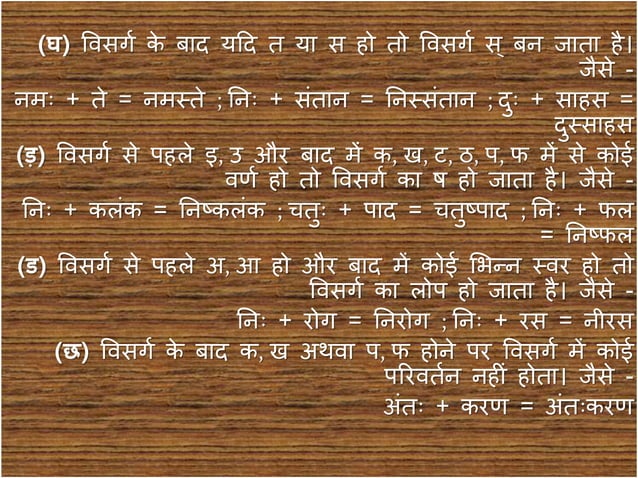 (घ) विसर्ग के बाद यदि त या स हो तो विसर्ग स् बन जाता है।
जैसे -
नमः + ते = नमस्ते ; निः + संतान = निस्संतान ; दुः + साहस =
दुस्साहस
(ड़) विसर्ग से पहले इ, उ और बाद में क, ख, ट, ठ, प, फ में से कोई
वर्ण हो तो विसर्ग का ष हो जाता है। जैसे -
निः + कलंक = निष्कलंक ; चतुः + पाद = चतुष्पाद ; निः + फल
= निष्फल
(ड) विसर्ग से पहले अ, आ हो और बाद में कोई भिन्न स्वर हो तो
विसर्ग का लोप हो जाता है। जैसे -
निः + रोग = निरोग ; निः + रस = नीरस
(छ) विसर्ग के बाद क, ख अथवा प, फ होने पर विसर्ग में कोई
परिवर्तन नहीं होता। जैसे -
अंतः + करण = अंतःकरण